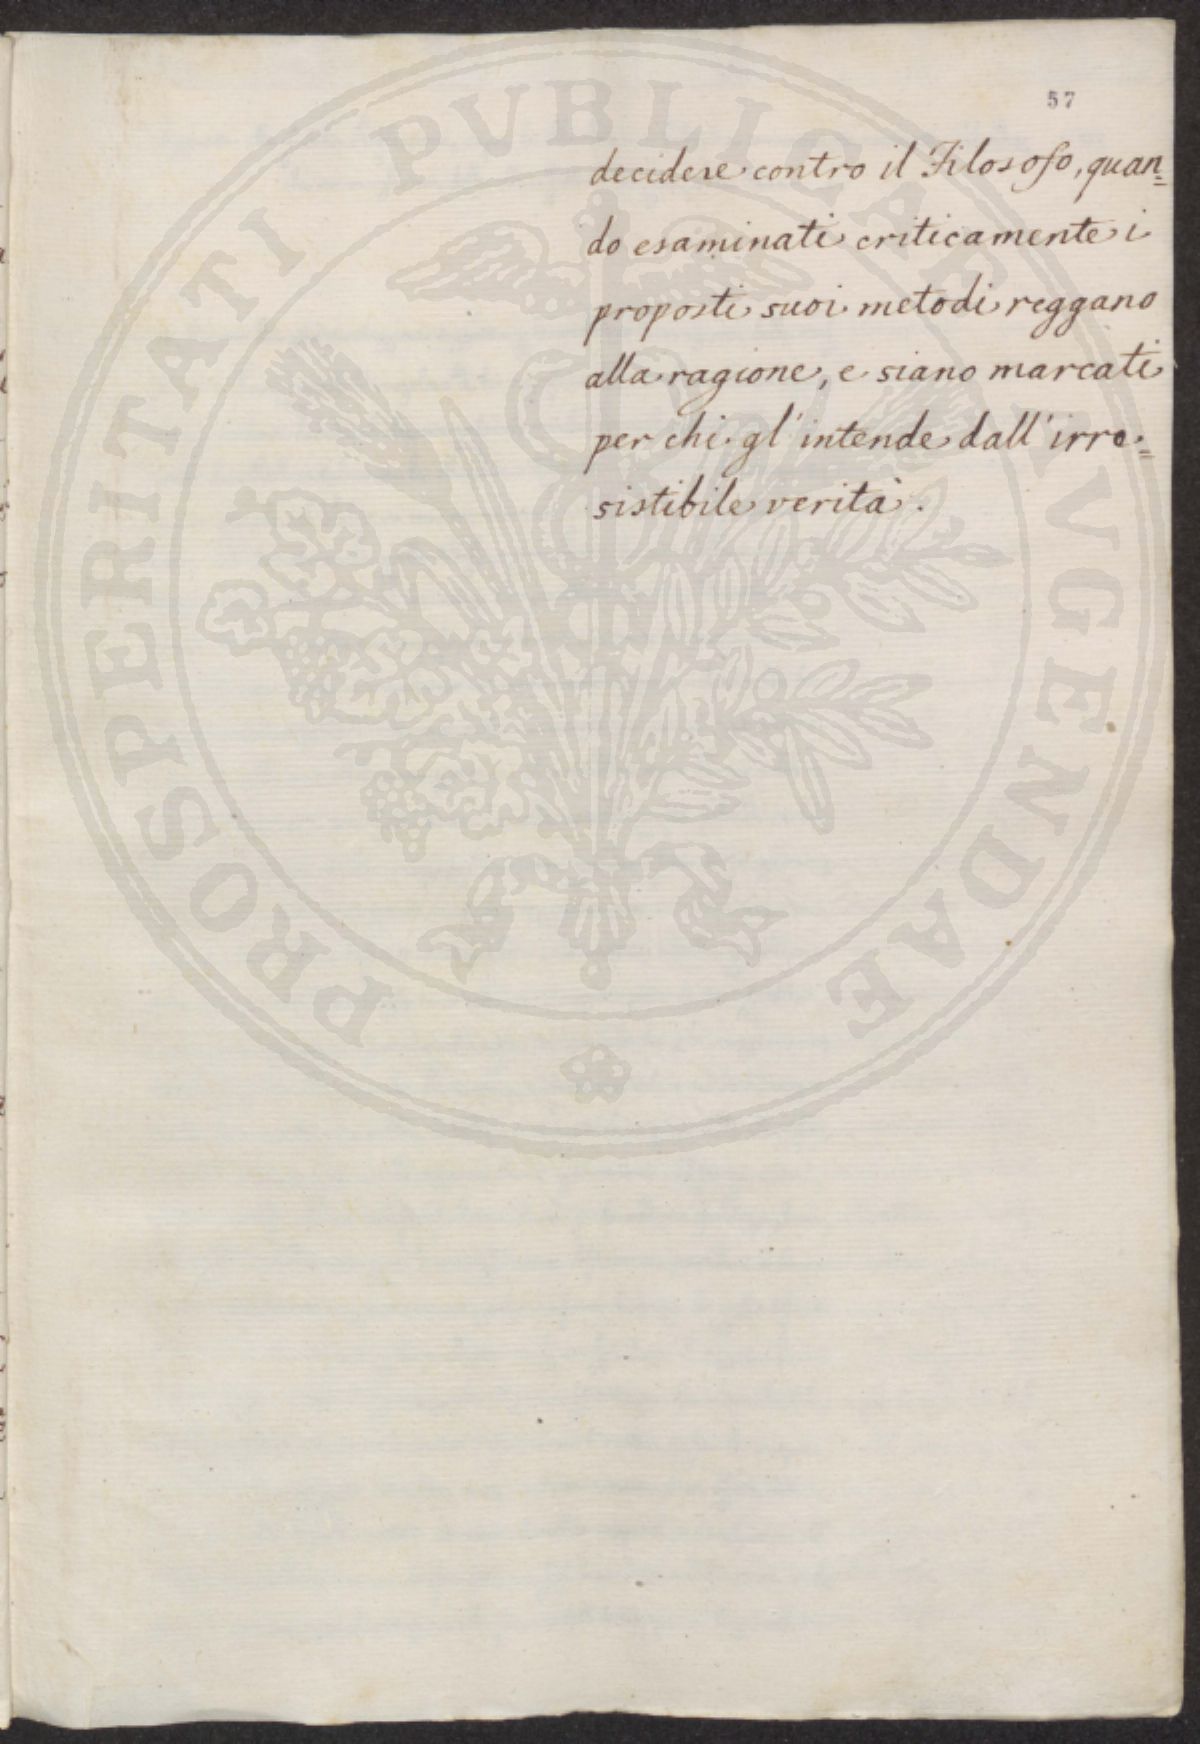 57
decidere contro il Filosofo, quan=
do esaminati criticamente i
proposti suoi metodi reggano
alla ragione, e siano marcati
per chi gl'intende dall'irre=
sistibile verità.
PROSPERITATI PVBLICAE AVGENDAE